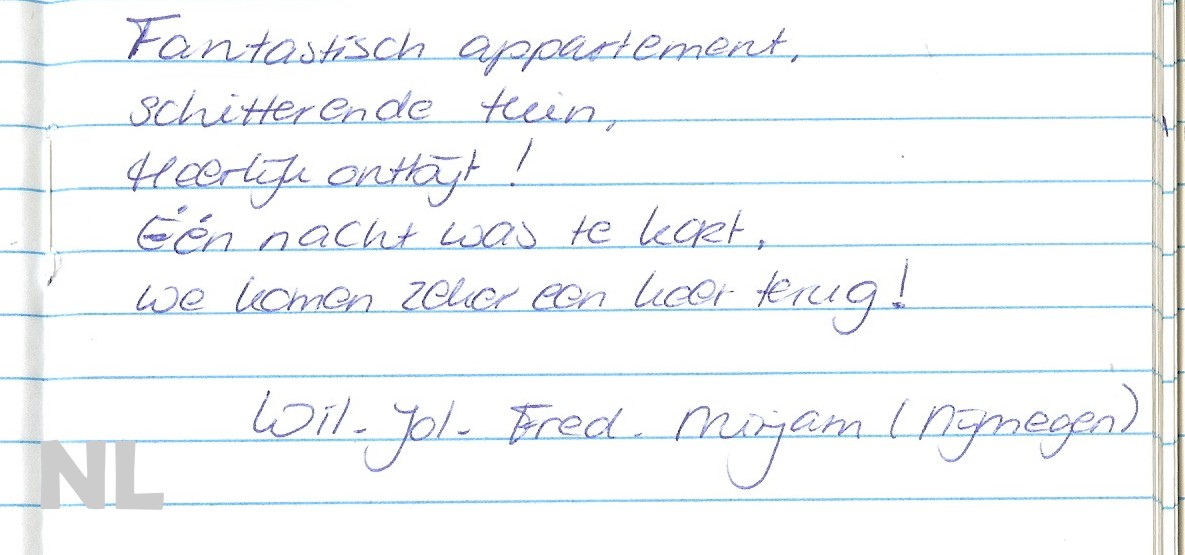 Fantastisch appartement,
schitterende tuin,
Heerlijk ontbijt!
Één nacht was te kort,
we komen zeker een keer terug!
Wil - Jol - Fred - Mirjam (Nijmegen)
NL